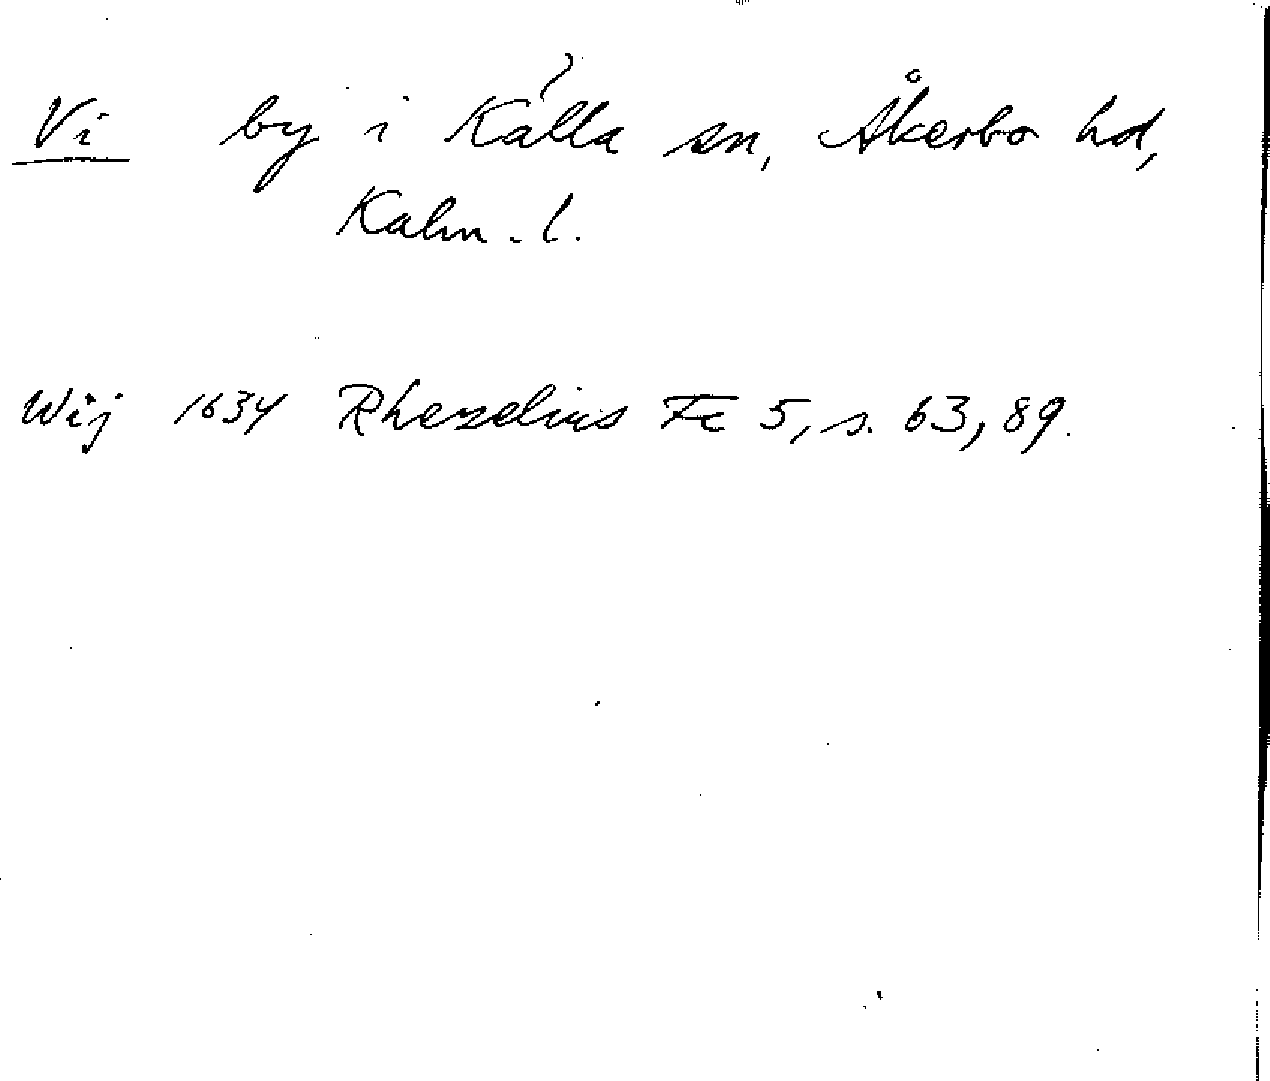 Vi by i Källa sn, Åkerbo hd,
Kalm. l.
Wij 1634 Rhezelius Fc 5, s. 63, 89.